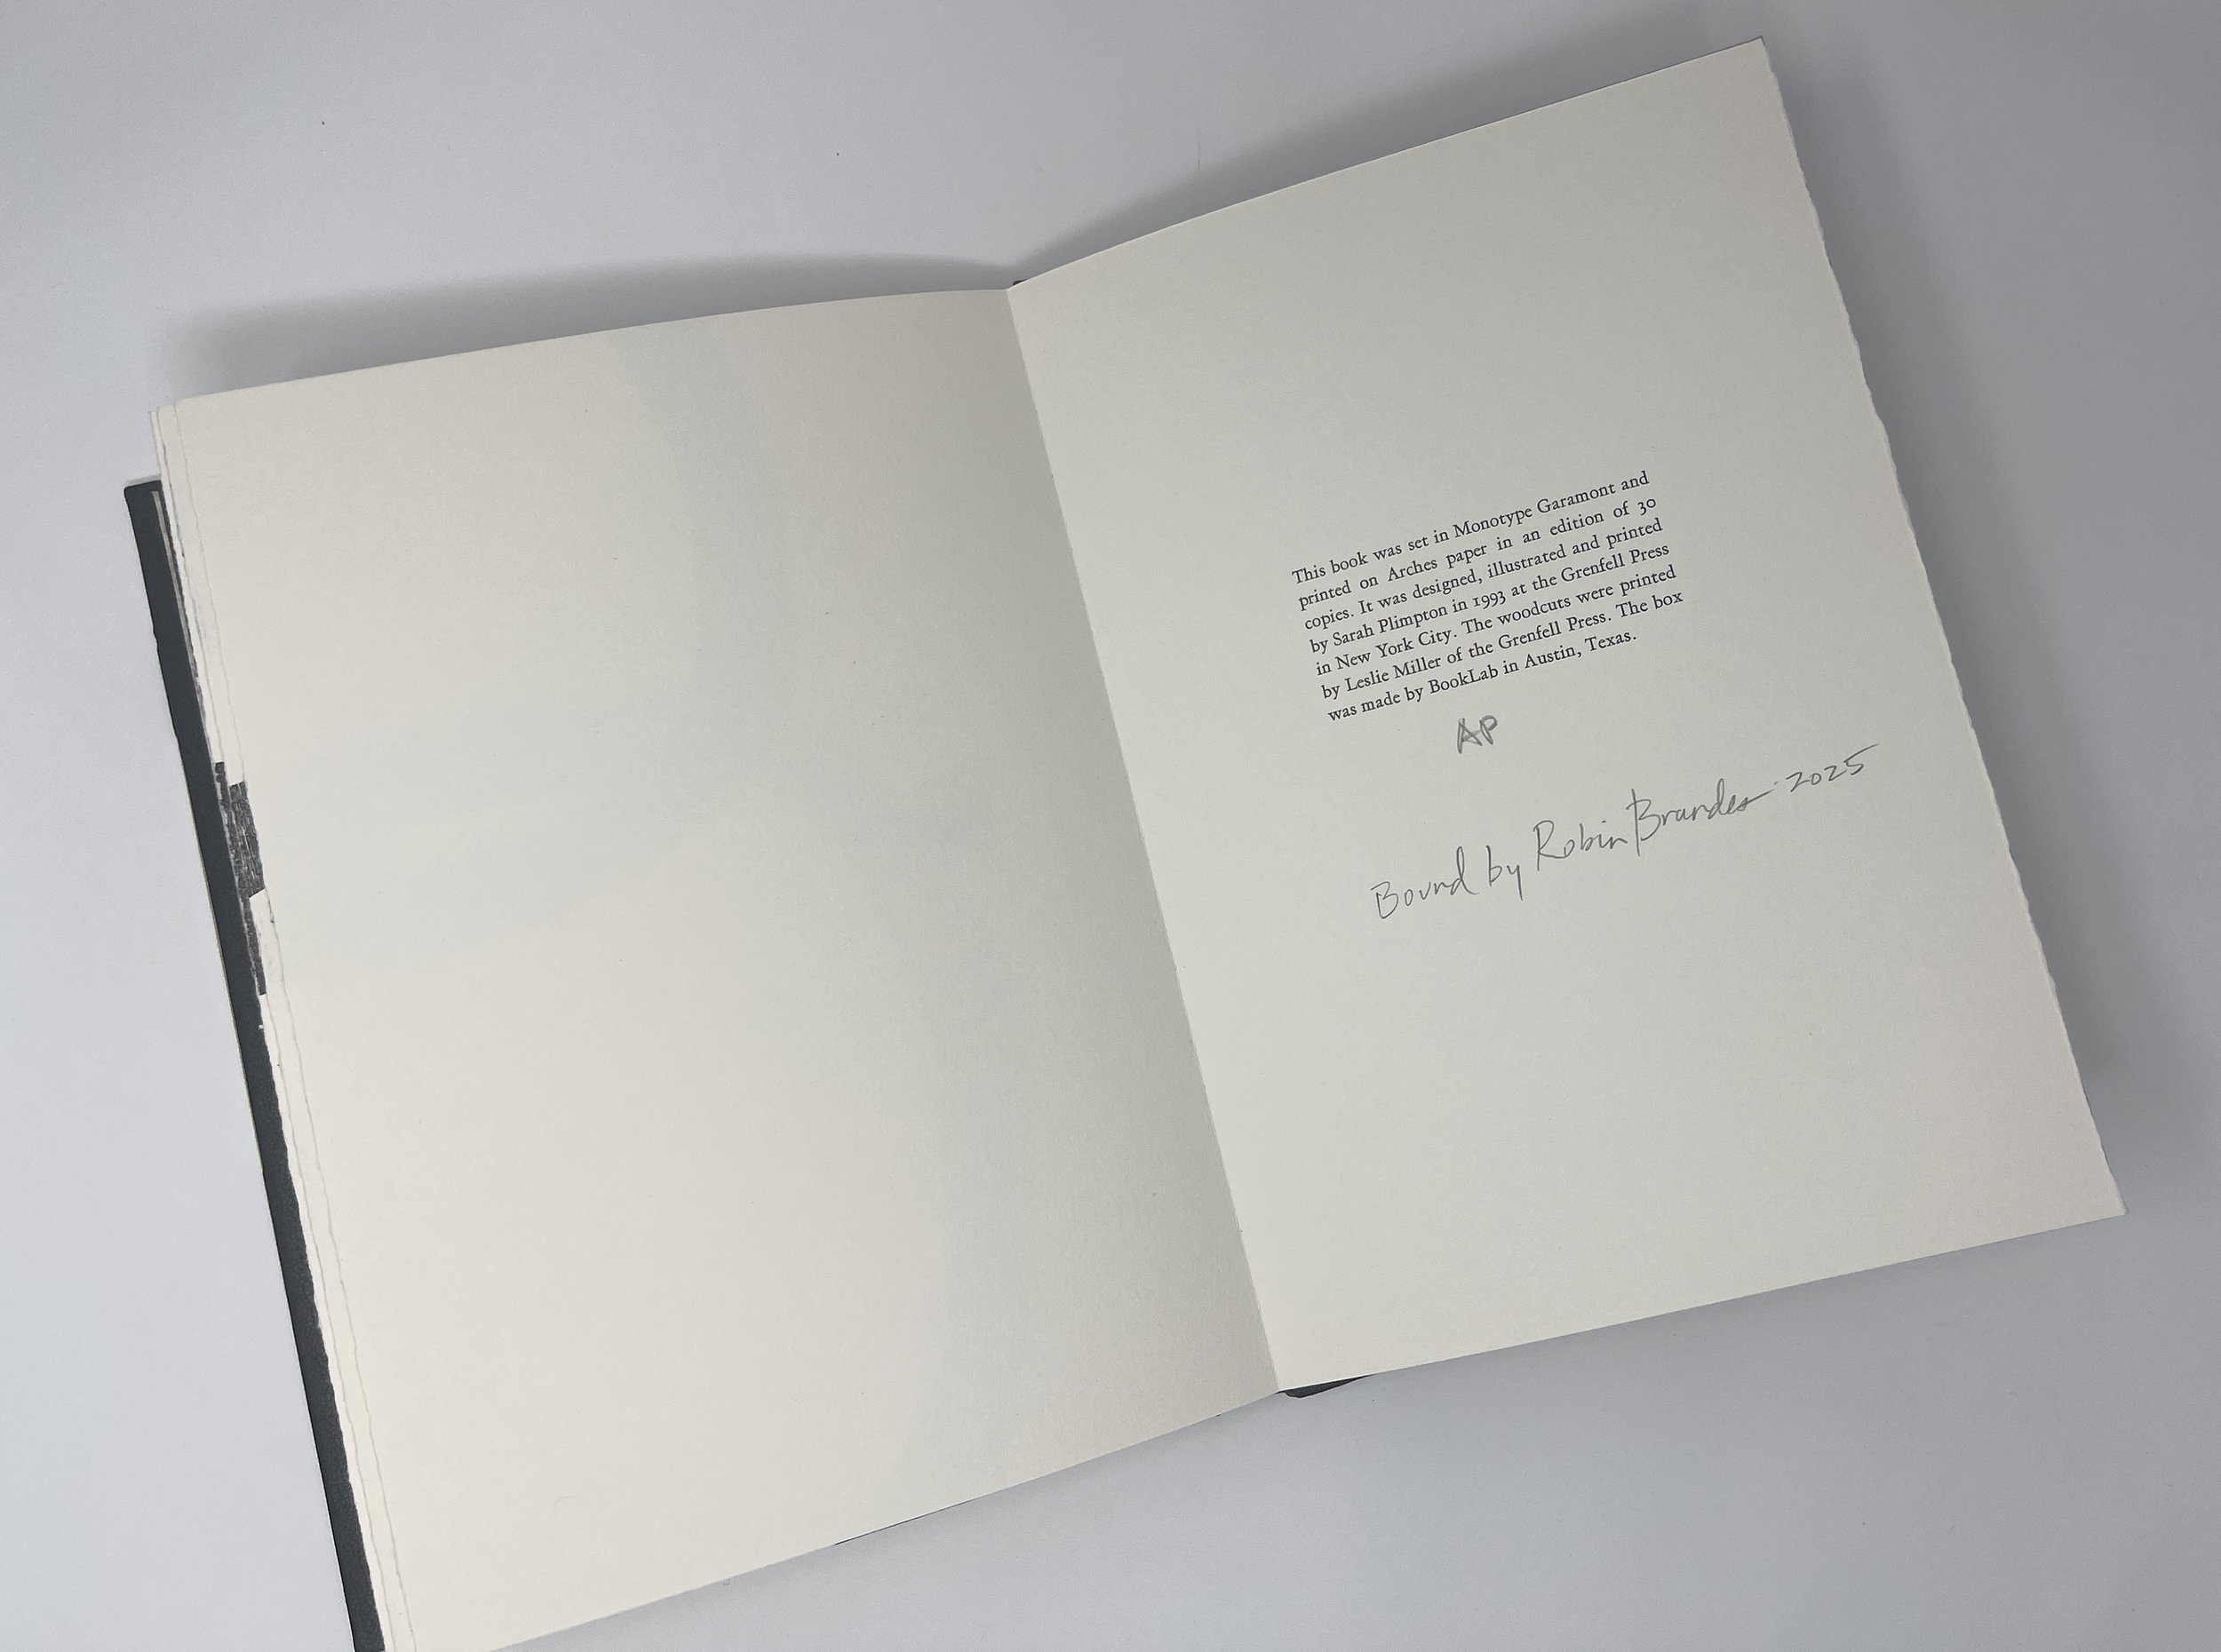 This book was set in Monotype Garamont and
printed on Arches paper in an edition of 30
copies. It was designed, illustrated and printed
by Sarah Plimpton in 1993 at the Grenfell Press
in New York City. The woodcuts were printed
by Leslie Miller of the Grenfell Press. The box
was made by BookLab in Austin, Texas.
AP
Bound by Robin Brandes 2025